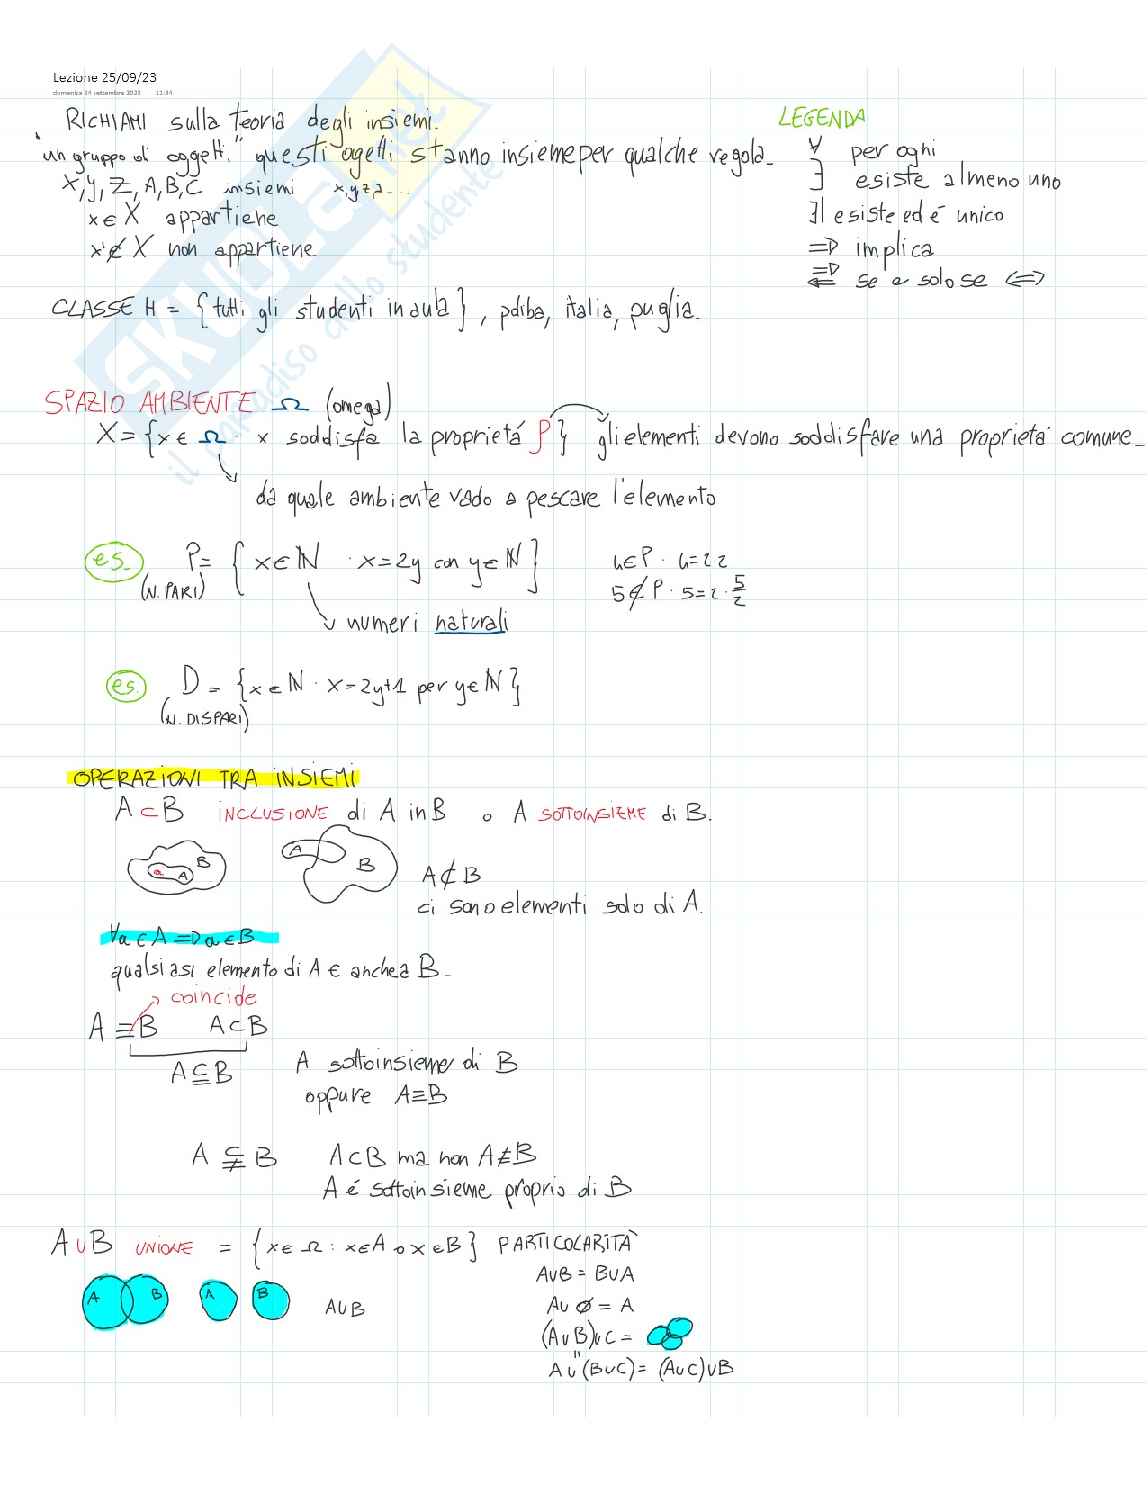 Lezione 25/09/23
domenica 24 settembre 2023 12:34
RICHIAMI sulla teoria degli insiemi.
"un gruppo di oggetti" questi ogetti stanno insieme per qualche regola.
X, Y, Z, A, B, C insiemi x, y, z, a...
x ∈ X appartiene
x ∉ X non appartiene
LEGENDA
∀ per ogni
∃ esiste almeno uno
∃| esiste ed é unico
⇒ implica
⇒ ⇐ se e solo se ⇔
CLASSE H = {tutti gli studenti in aula}, italia, puglia.
SPAZIO AMBIENTE Ω (omega)
X = {x ∈ Ω · x soddisfa la proprietá P} gli elementi devono soddisfare una proprietá comune.
da quale ambiente vado a pescare l'elemento
es. P = {x ∈ ℕ · x = 2y con y ∈ ℕ}
(N. PARI)
4 ∈ P · 4 = 2 2
5 ∉ P · 5 = 2 · 5/2
numeri naturali
es. D = {x ∈ ℕ · x = 2y+1 per y ∈ ℕ}
(N. DISPARI)
OPERAZIONI TRA INSIEMI
A ⊂ B INCLUSIONE di A in B o A SOTTOINSIEME di B.
a A B
A B
A ⊄ B
ci sono elementi solo di A.
∀a ∈ A ⇒ a ∈ B
qualsiasi elemento di A ∈ anche a B.
coincide
A ≡ B A ⊂ B
A ⊆ B
A sottoinsieme di B
oppure A ≡ B
A ⊊ B A ⊂ B ma non A ≢ B
A é sottoinsieme proprio di B
A ∪ B UNIONE = {x ∈ Ω : x ∈ A o x ∈ B} PARTICOLARITÀ
A B A B A∪B
A∪B = B∪A
A∪ ∅ = A
(A∪B)∪C =
"
A∪(B∪C) = (A∪C)∪B
SKUOLA.net
il paradiso dello studente